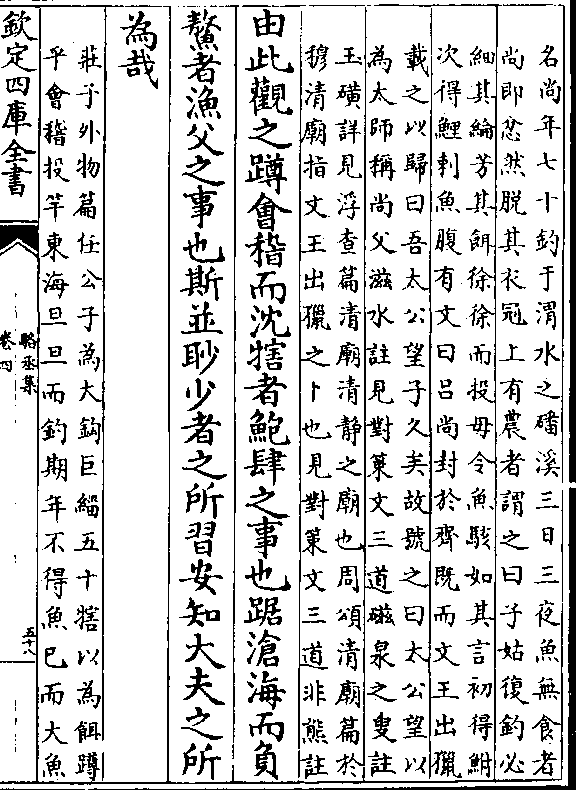 名尚年七十釣于渭水之磻溪三日三夜魚無食者
尚即忿然脱其衣冠上有農者謂之曰子姑復釣必
細其綸芳其餌徐徐而投毋令魚駭如其言初得鮒
次得鯉刺魚腹有文曰吕尚封於齊既而文王出獵
載之以歸曰吾太公望子久矣故號之曰太公望以
為太師稱尚父滋水註見對策文三道磁泉之叟註
玉璜詳見浮查篇清廟清静之廟也周頌清廟篇於
穆清廟指文王出獵之卜也見對策文三道非熊註
由此觀之蹲會稽而沈犗者鮑肆之事也踞滄海而負
鰲者漁父之事也斯並眇少者之所習安知大夫之所
為哉
莊子外物篇任公子為大鈎巨緇五十犗以為餌蹲
乎會稽投竿東海旦旦而釣期年不得魚已而大魚
欽定四庫全書
駱丞集
卷四
五十八